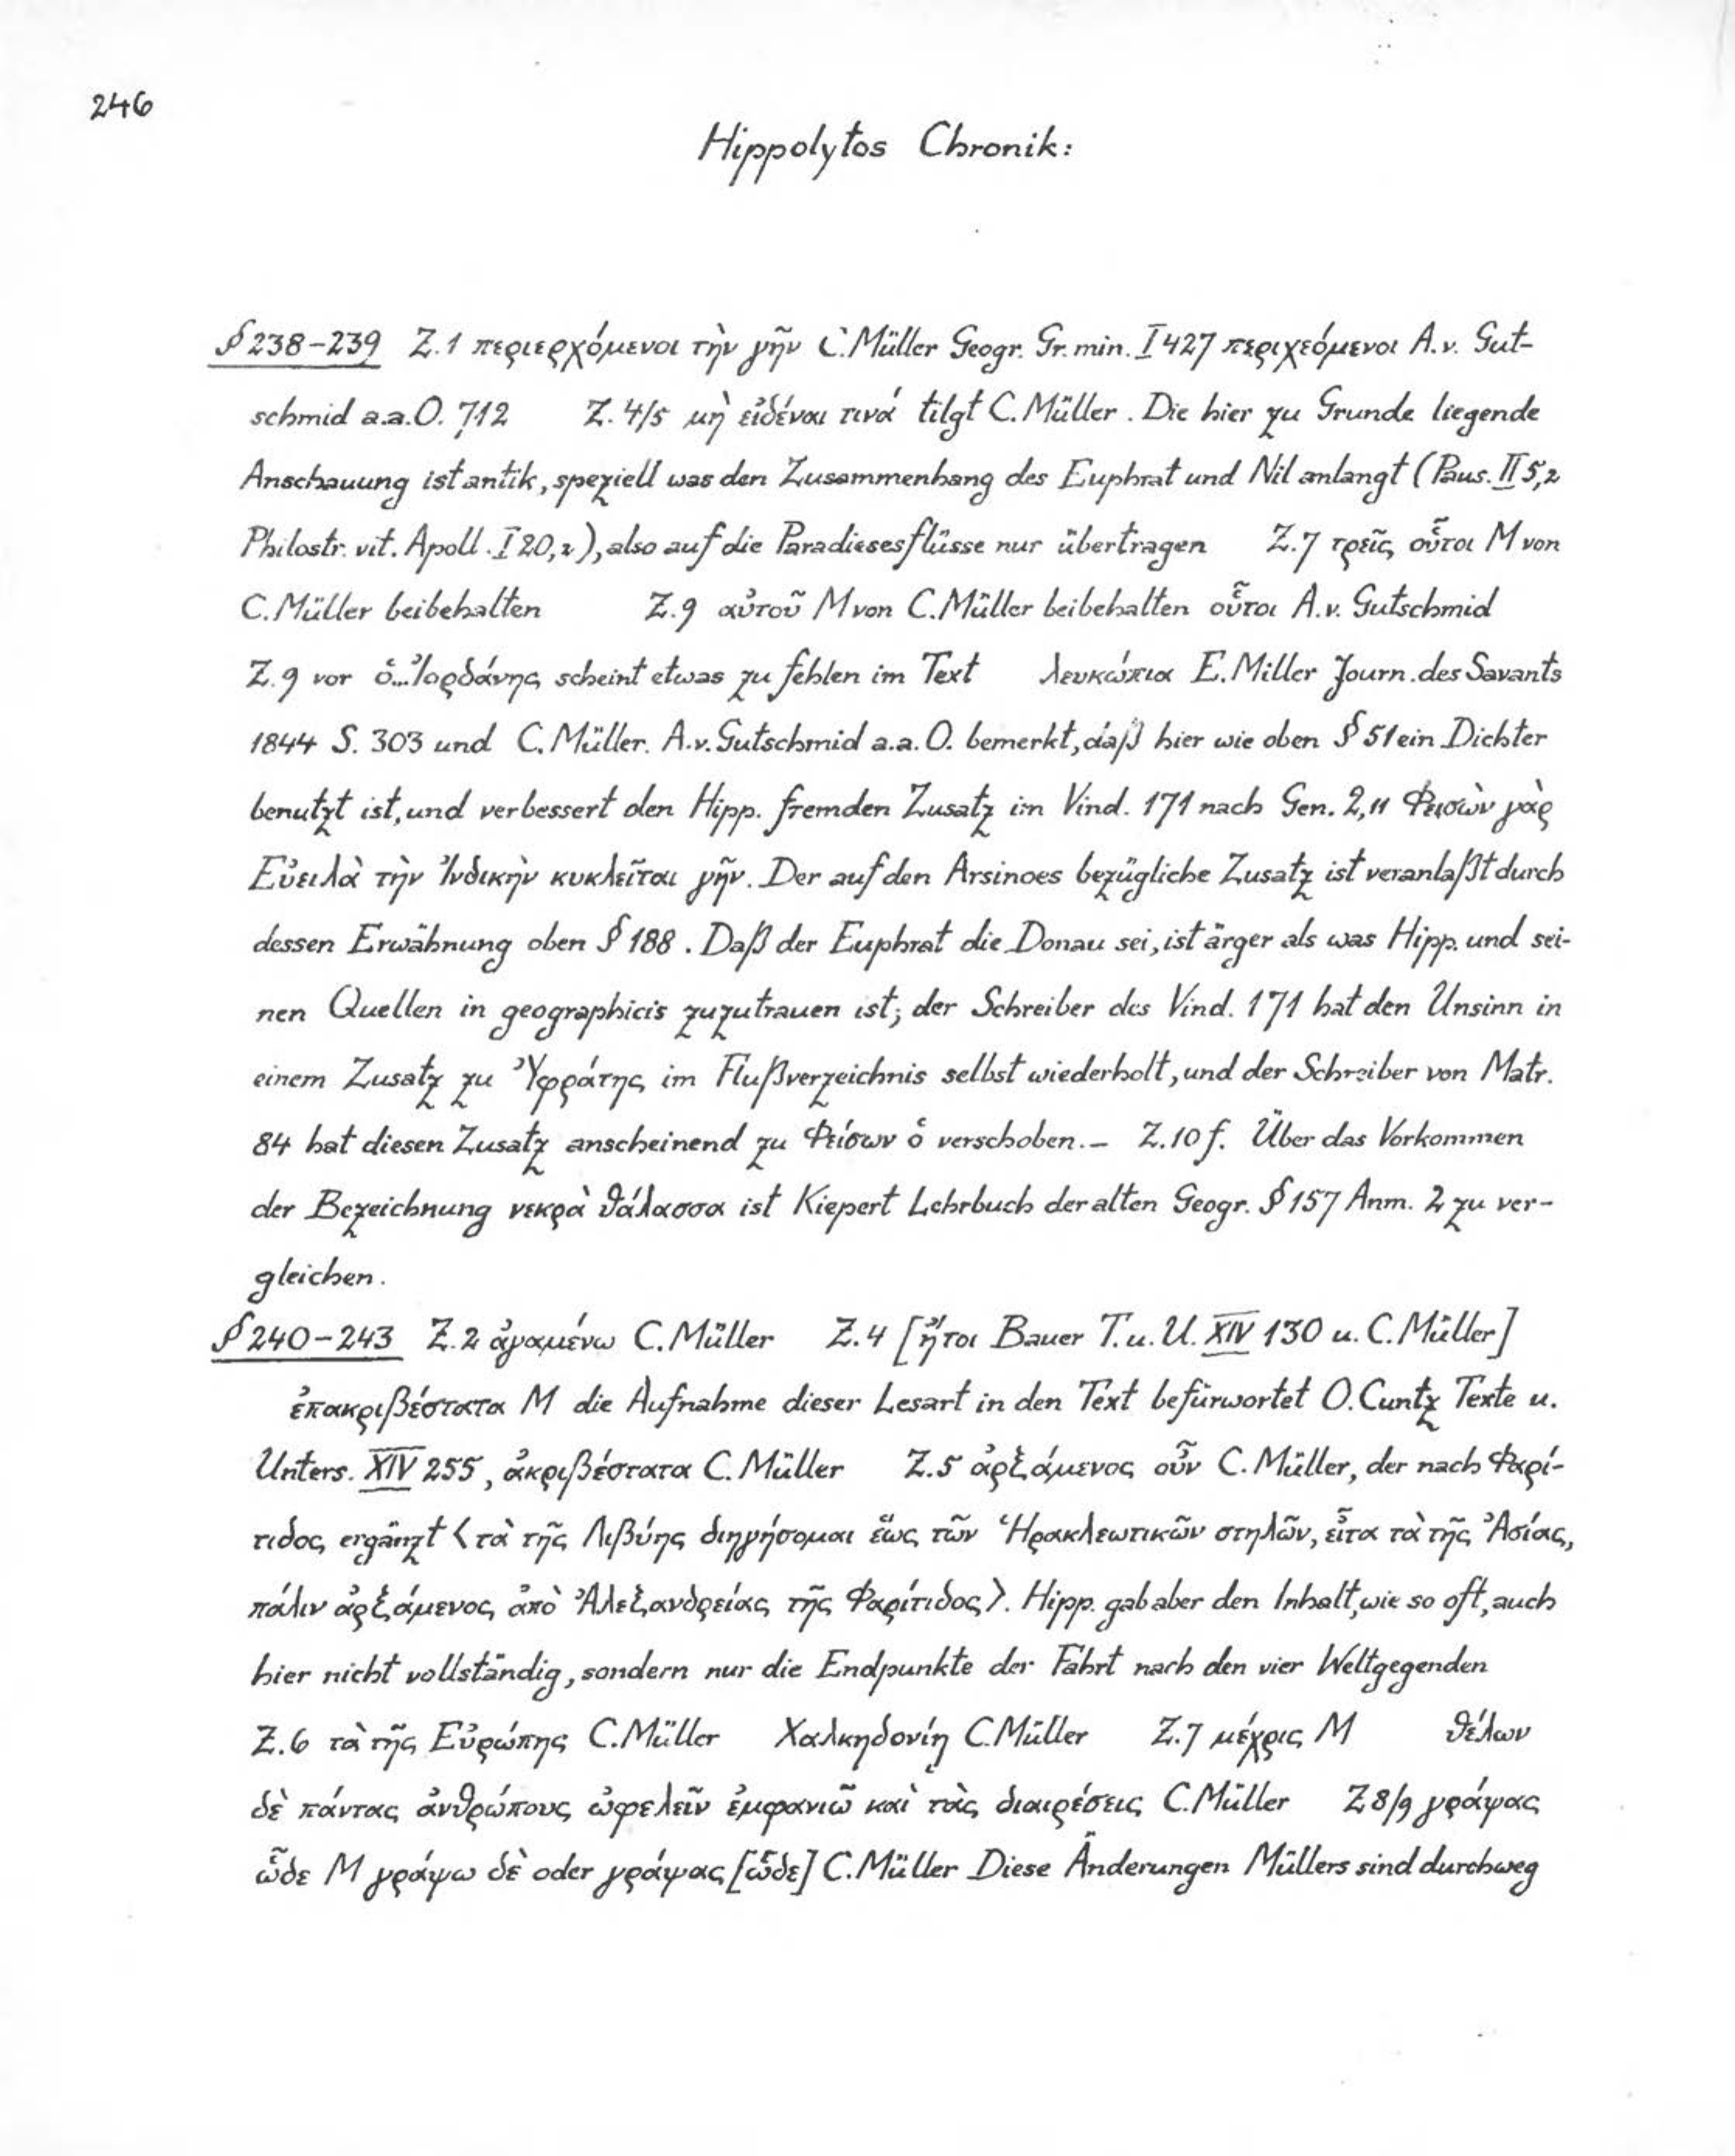 246
Hippolytos Chronik:
§ 238–239 Z. 1 περιερχόμενοι τὴν γῆν C. Müller Geogr. Gr. min. I 427 περιχεόμενοι A. v. Gut-
schmid a. a. O. 712 Z. 4/5 μὴ εἰδέναι τινά tilgt C. Müller. Die hier zu Grunde liegende
Anschauung ist antik, speziell was den Zusammenhang des Euphrat und Nil anlangt (Paus. II 5,2
Philostr. vit. Apoll. I 20,2), also auf die Paradiesesflüsse nur übertragen Z. 7 τρεῖς οὗτοι M von
C. Müller beibehalten Z. 9 αὐτοῦ M von C. Müller beibehalten οὗτοι A. v. Gutschmid
Z. 9 vor ὁ... Ἰορδάνης scheint etwas zu fehlen im Text λευκώπια E. Miller Journ. des Savants
1844 S. 303 und C. Müller. A. v. Gutschmid a. a. O. bemerkt, daß hier wie oben § 51 ein Dichter
benutzt ist, und verbessert den Hipp. fremden Zusatz im Vind. 171 nach Gen. 2,11 Φεισὼν γὰρ
Εὐειλὰ τὴν Ἰνδικὴν κυκλεῖται γῆν. Der auf den Arsinoes bezügliche Zusatz ist veranlaßt durch
dessen Erwähnung oben § 188. Daß der Euphrat die Donau sei, ist ärger als was Hipp. und sei-
nen Quellen in geographicis zuzutrauen ist; der Schreiber des Vind. 171 hat den Unsinn in
einem Zusatz zu Ὑφράτης im Flußverzeichnis selbst wiederholt, und der Schreiber von Matr.
84 hat diesen Zusatz anscheinend zu Φείσων ὁ verschoben. – Z. 10 f. Über das Vorkommen
der Bezeichnung νεκρὰ θάλασσα ist Kiepert Lehrbuch der alten Geogr. § 157 Anm. 2 zu ver-
gleichen.
§ 240–243 Z. 2 ἀγαμένω C. Müller Z. 4 [ἤτοι Bauer T. u. U. XIV 130 u. C. Müller]
ἐπακριβέστατα M die Aufnahme dieser Lesart in den Text befürwortet O. Cuntz Texte u.
Unters. XIV 255, ἀκριβέστατα C. Müller Z. 5 ἀρξάμενος οὖν C. Müller, der nach Φαρί-
τιδος ergänzt ⟨τὰ τῆς Λιβύης διηγήσομαι ἕως τῶν Ἡρακλεωτικῶν στηλῶν, εἶτα τὰ τῆς Ἀσίας,
πάλιν ἀρξάμενος ἀπὸ Ἀλεξανδρείας τῆς Φαρίτιδος⟩. Hipp. gab aber den Inhalt, wie so oft, auch
hier nicht vollständig, sondern nur die Endpunkte der Fahrt nach den vier Weltgegenden
Z. 6 τὰ τῆς Εὐρώπης C. Müller Χαλκηδονίῃ C. Müller Z. 7 μέχρις M θέλων
δὲ πάντας ἀνθρώπους ὠφελεῖν ἐμφανιῶ καὶ τὰς διαιρέσεις C. Müller Z 8/9 γράψας
ὧδε M γράψω δὲ oder γράψας [ὧδε] C. Müller Diese Änderungen Müllers sind durchweg